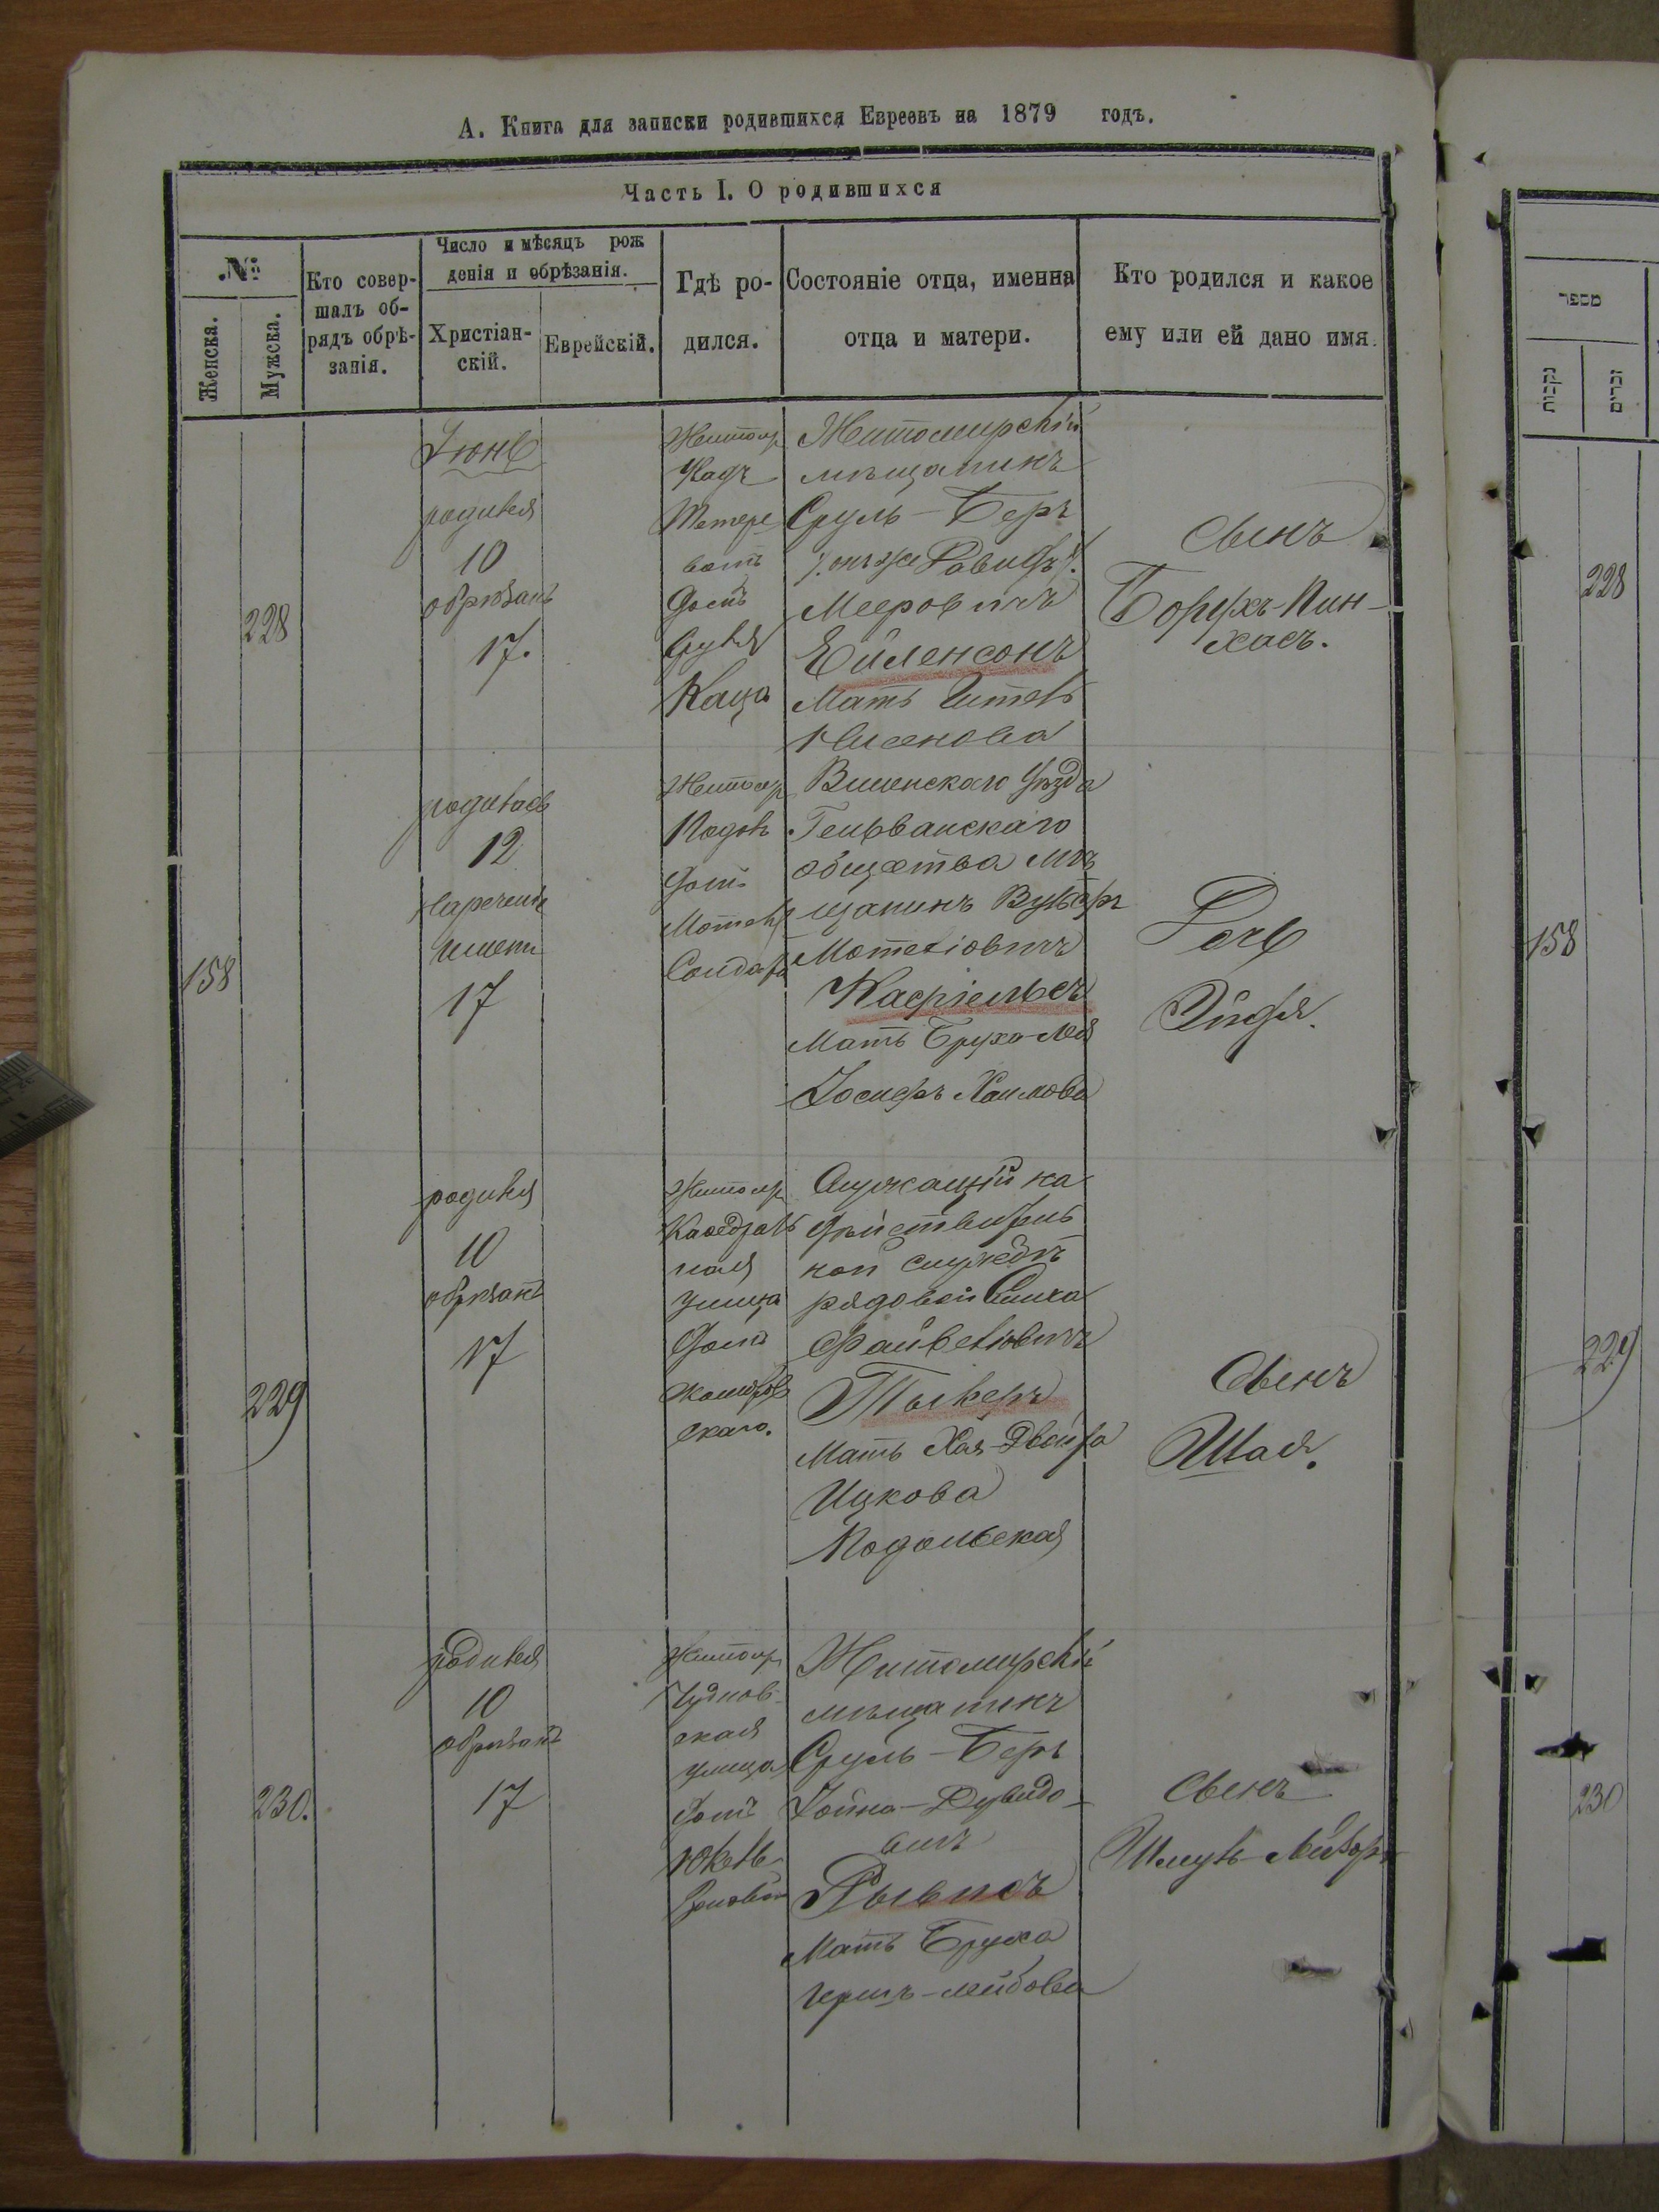 А. Книга для записки родившихся Евреевъ на 1879 годъ.
Часть I. О родившихся
№
Женска.
Мужска.
Кто совер-
шалъ об-
рядъ обрѣ-
занія.
Число и мѣсяцъ рож
денія и обрѣзанія.
Христіан-
скій.
Еврейскій.
Гдѣ ро-
дился.
Состояніе отца, именна
отца и матери.
Кто родился и какое
ему или ей дано имя.
228
Іюнь
родился
10
обрѣзанъ
17.
Житомр
Надъ
Тетере
вомъ
домъ
Сруля
Каца
Житомирскій
мѣщанинъ
Сруль-Беръ
Мееровичъ
Ейленсонъ
Мать Гитель
Нисенова
Сынъ
Борухъ-Пин-
хасъ.
158
родилась
12
наречена
имени
17
Житомр
домъ
Виленскаго уѣзда
Гельванскаго
общества мѣ
щанинъ
Мотеліовичъ
Касріельсъ
Мать Бруха-Лея
Іосифъ Хаимова
Дочь
Эйдля.
229
родился
10
обрѣзанъ
17
Житомр
Каѳедраль
ная
улица
домъ
скаго.
Служащій на
дѣйствитель
ной службѣ
рядовой Симха
Файвеліовичъ
Тыкеръ
Мать Хая-Двойра
Ицкова
Подольская
Сынъ
Шая.
230.
родился
10
обрѣзанъ
17
Житомр
Чуднов-
ская
улица
домъ
Житомирскій
мѣщанинъ
Сруль-Беръ
Іойна-Дувидо-
вичъ
Рывисъ
Мать Бруха
Гершъ-Лейбова
Сынъ
Шмуль-Лейзоръ
מספר
נקבות
זכרים
228
158
229
230